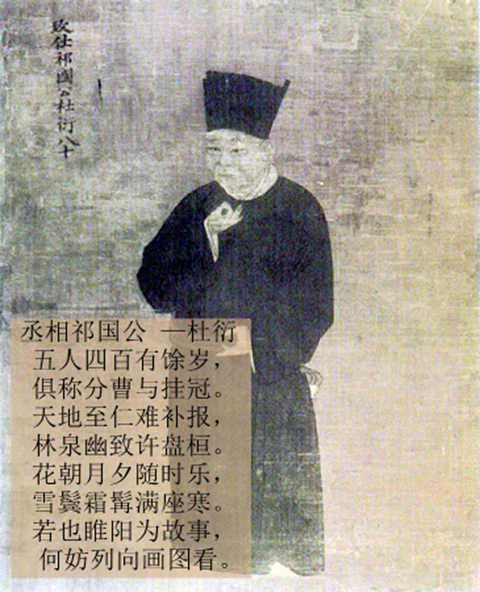 致仕祁國公杜衍八十
丞相祁国公 —杜衍
五人四百有馀岁，
俱称分曹与挂冠。
天地至仁难补报，
林泉幽致许盘桓。
花朝月夕随时乐，
雪鬓霜髯满座寒。
若也睢阳为故事，
何妨列向画图看。